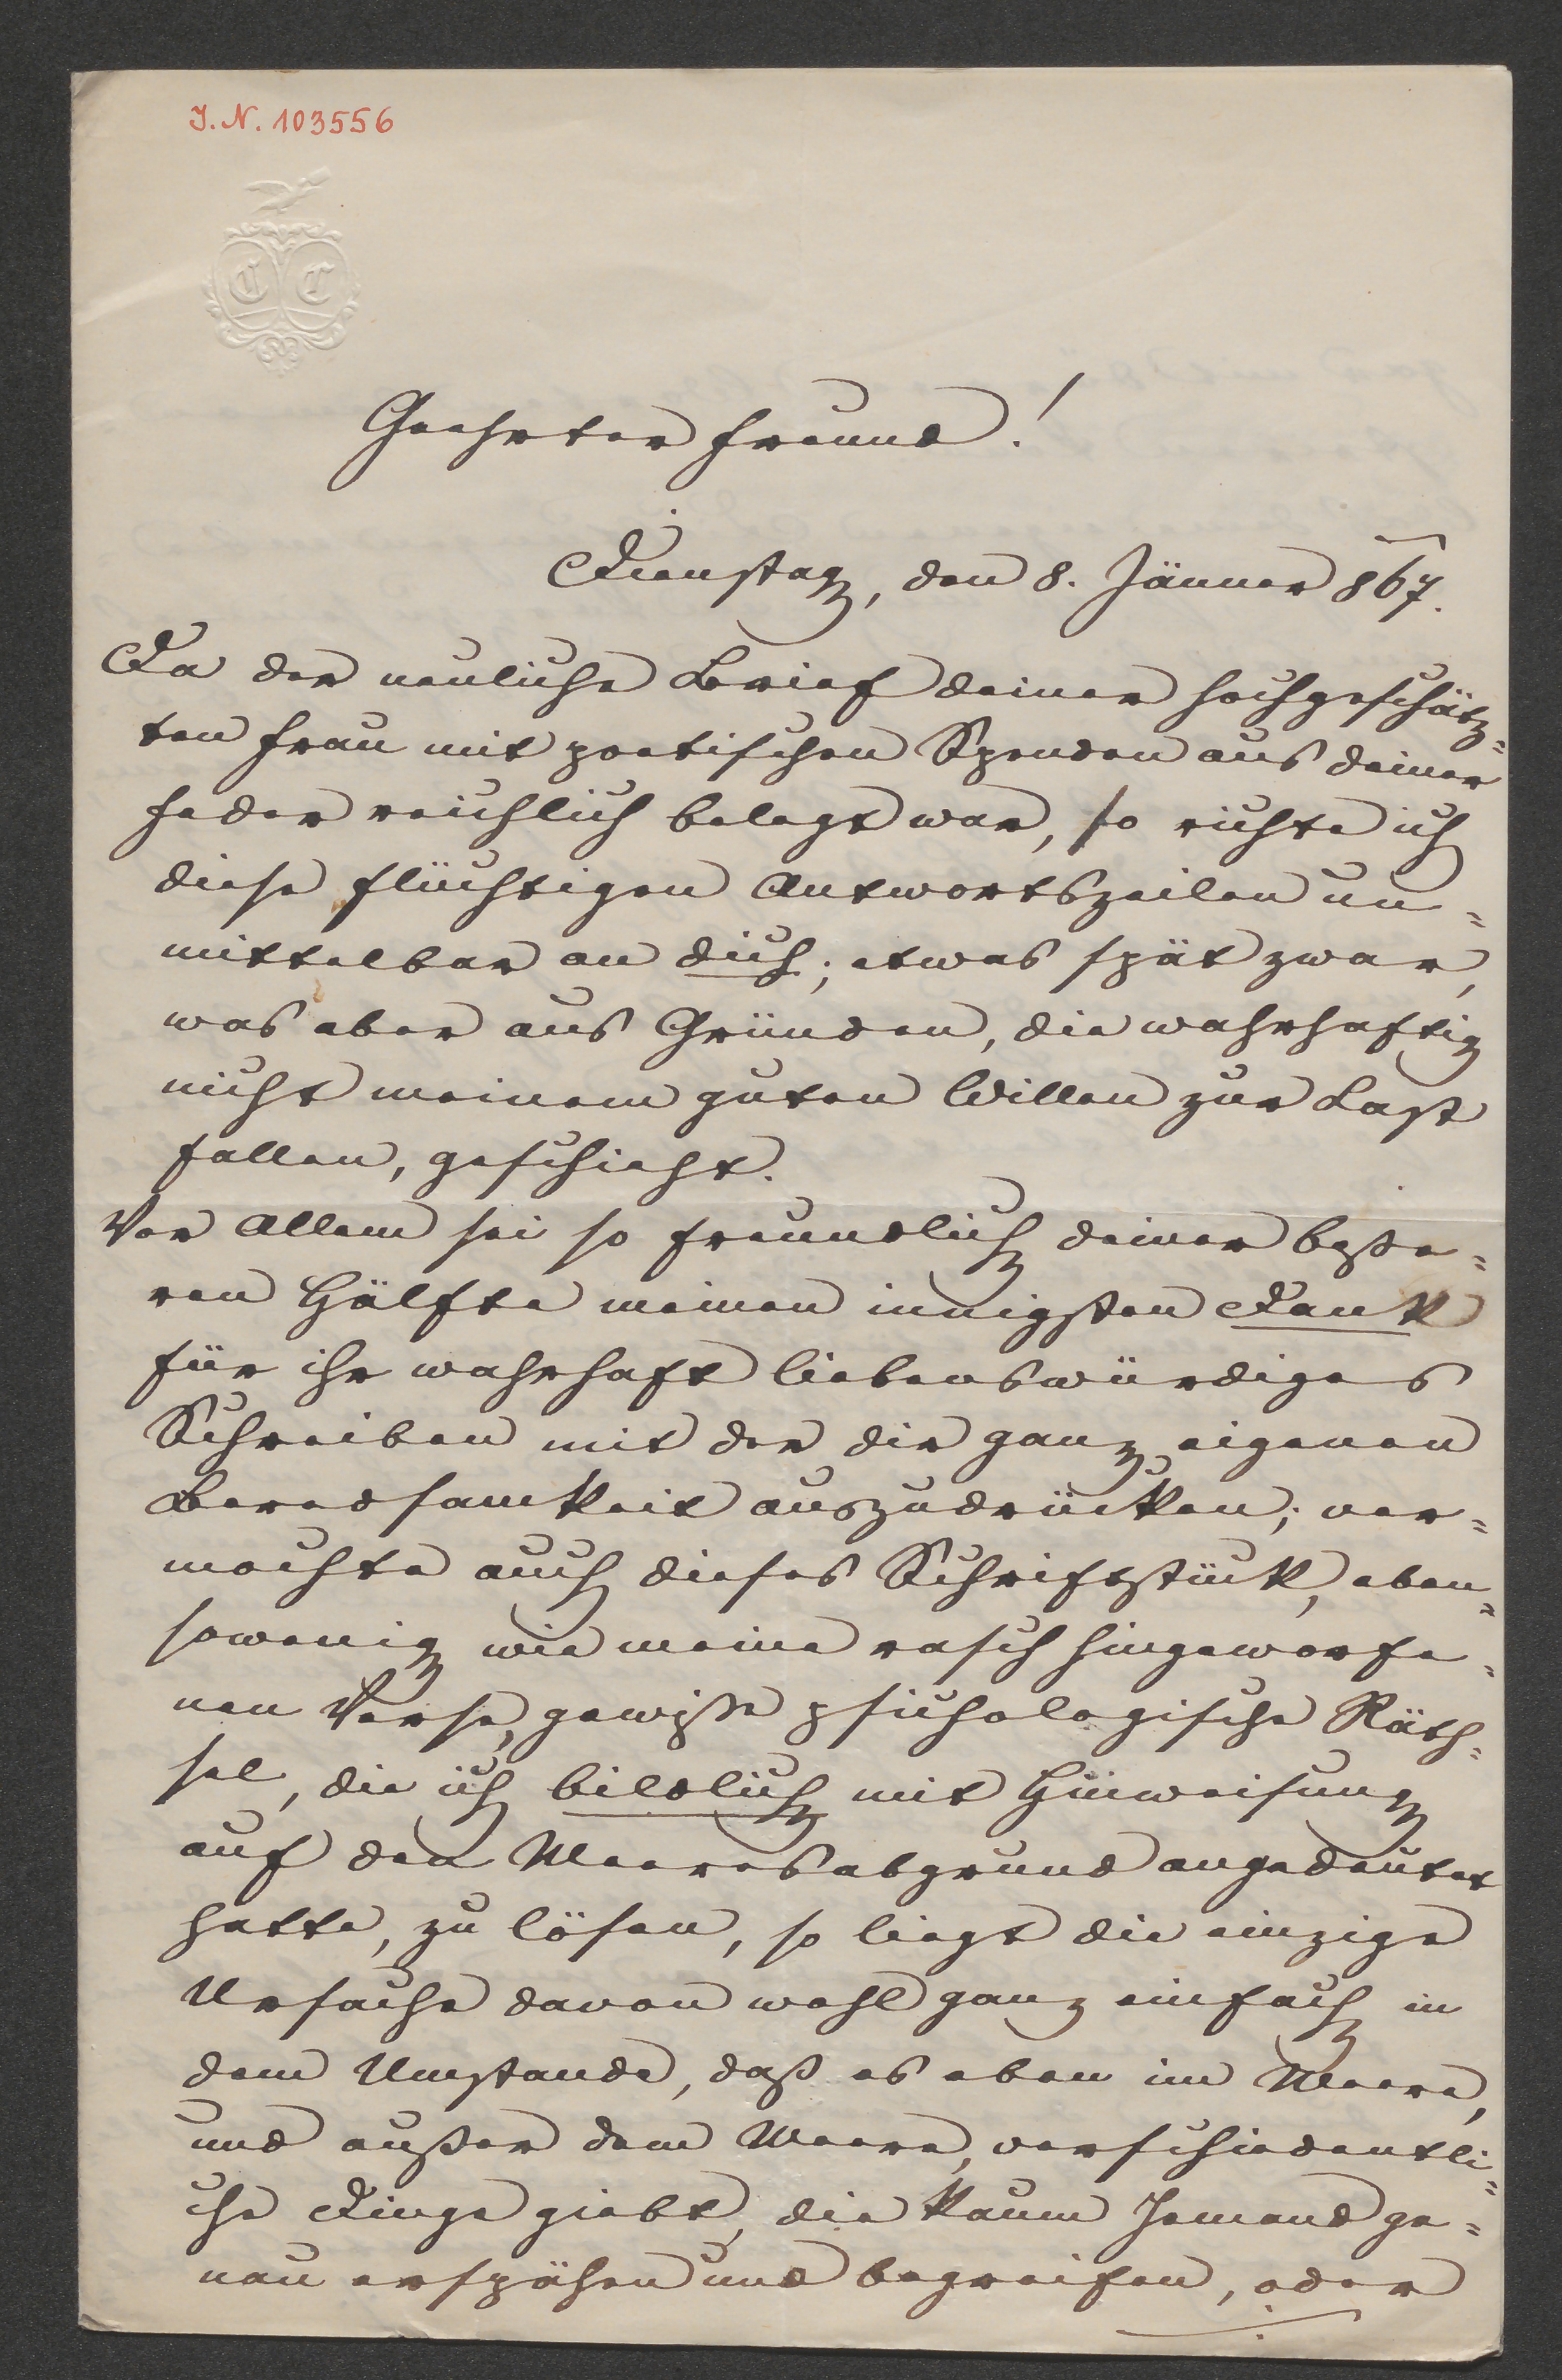 I. N. 103556
C C
Geehrter Freund!
Dienstag, den 8. Jänner 867.
Da der neuliche Brief deiner hochgeschätz=
ten Frau mit poetischen Spenden aus deiner
Feder reichlich belegt war, so richte ich
diese flüchtigen Antwortszeilen un=
mittelbar an dich; etwas spät zwar,
was aber aus Gründen, die wahrhaftig
nicht meinem guten Willen zur Last
fallen, geschieht.
Vor Allem sei so freundlich deiner beße=
ren Hälfte meinen innigsten Dank
für ihr wahrhaft liebenswürdiges
Schreiben mit der dir ganz eigenen
Beredsamkeit auszudrücken; ver=
mochte auch dieses Schriftstück, eben=
sowenig wie meine rasch hingeworfe=
nen Verse, gewiße psichologische Räth=
sel, die ich bildlich mit Hinweisung
auf den Meeresabgrund angedeutet
hatte, zu lösen, so liegt die einzige
Ursache davon wohl ganz einfach in
dem Umstande, daß es eben im Meere,
und außer dem Meere, verschiedentli=
che Dinge giebt, die kaum Jemand ge=
nau erspähen und begreifen, oder